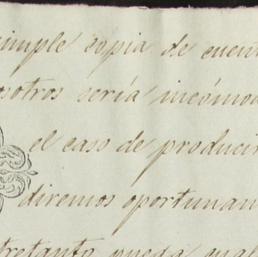 simple copia de cuent
osotros sería incómod
el caso de producir
diremos oportunam
tretanto pueda